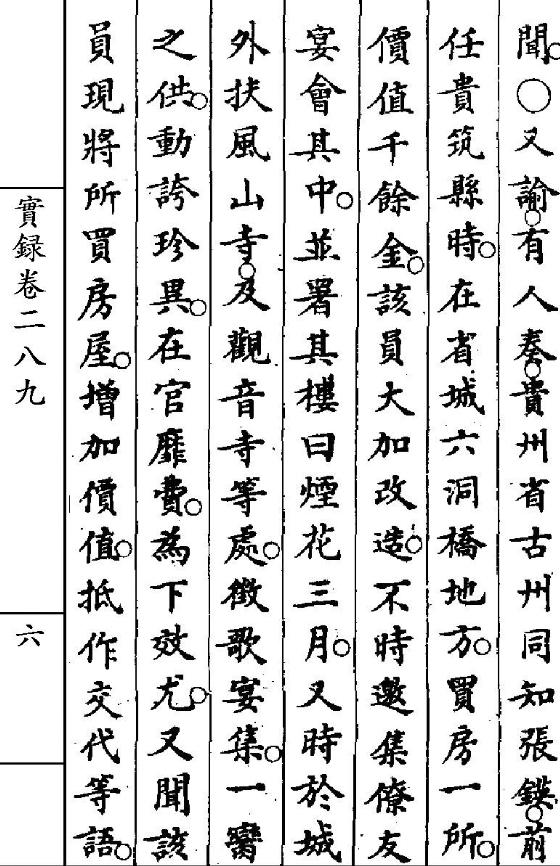 聞。○又諭。有人奏。貴州省古州同知張鍈。前
任貴筑縣時。在省城六洞橋地方。買房一所。
價值千餘金。該員大加改造。不時邀集僚友
宴會其中。並署其樓曰煙花三月。又時於城
外扶風山寺。及觀音寺等處。徵歌宴集。一臠
之供。動誇珍異。在官靡費。為下效尤。又聞該
員現將所買房屋。增加價值。抵作交代等語。
實錄卷二八九
六